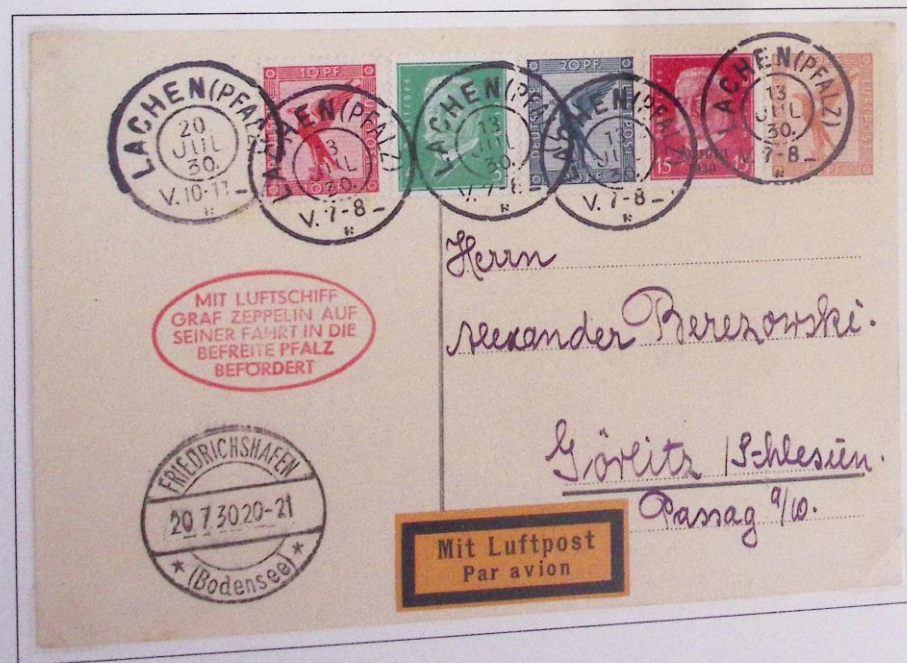 LACHEN (PFALZ)
20.
JUL
30.
V. 10-11
LACHEN (PFALZ)
13
JUL
30.
V. 7-8
LACHEN (PFALZ)
13
JUL
30.
V. 7-8
LACHEN (PFALZ)
13
JUL
30.
V. 7-8
LACHEN (PFALZ)
13
JUL
30.
V. 7-8
10 PF.
20 PF.
LUFTPOST
15 15
LUFTPOST
MIT LUFTSCHIFF
GRAF ZEPPELIN AUF
SEINER FAHRT IN DIE
BEFREITE PFALZ
BEFÖRDERT
FRIEDRICHSHAFEN
20.7.30.20-21
* (Bodensee) *
Herrn
Alexander Berezowski.
Görlitz /Schlesien.
Passag 9/10.
Mit Luftpost
Par avion